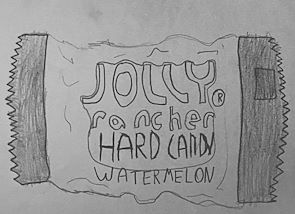 JOLLY
rancher®
HARD CANDY
WATERMELON